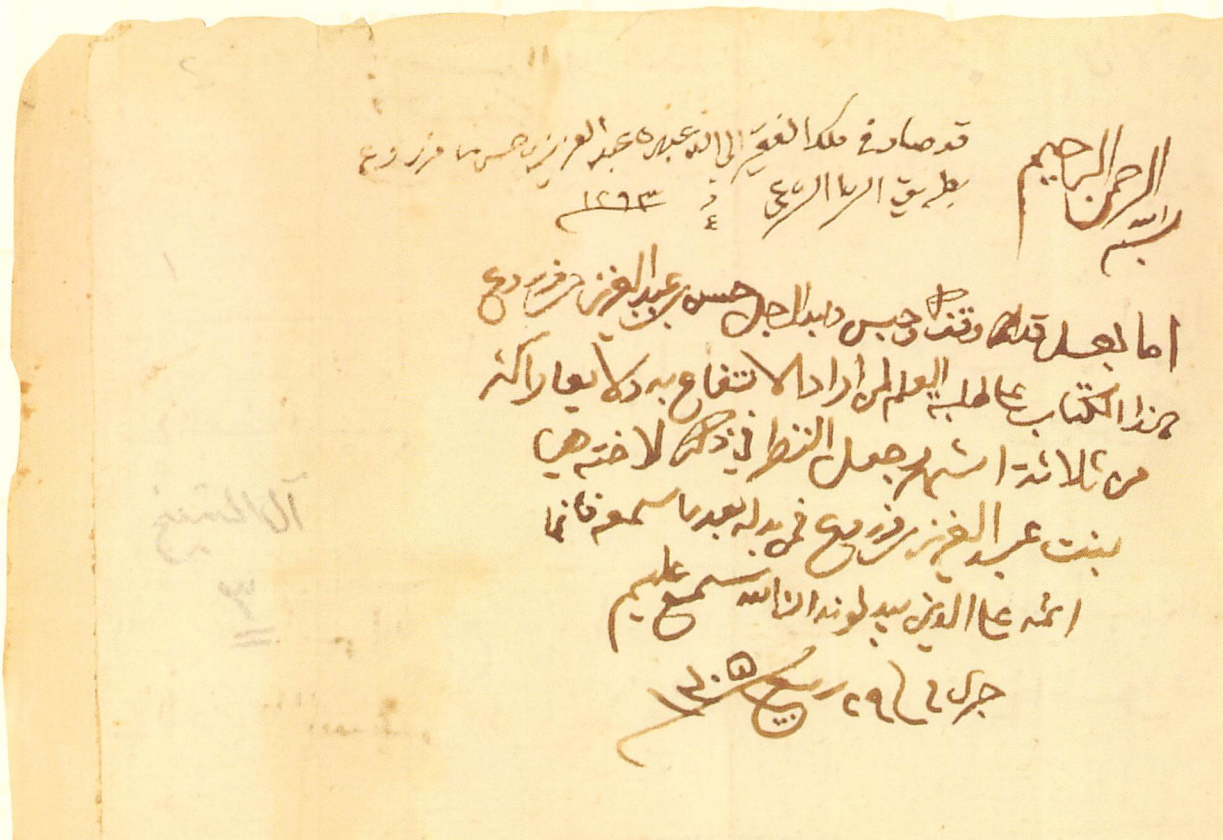 بسم الله الرحمن الرحيم
قد صار في ملك الفقير إلى الله عبده عبد العزيز بن حسن بن مزروع
بطريق الشرعي ١٢٩٣
اما بعد فقد وقف وحبس وابد الرجل حسن بن عبد العزيز بن مزروع
هذا الكتاب على طلبة العلم لمن اراد الانتفاع به ولا يعار اكثر
من ثلاثة اشهر وجعل النظر في ذلك لاخته هيا
بنت عبد العزيز بن مزروع فمن بدله بعد ما سمعه فانما
اثمه على الذين يبدلونه ان الله سميع عليم
جرى في ٢٩ ربيع ١٣٠٥